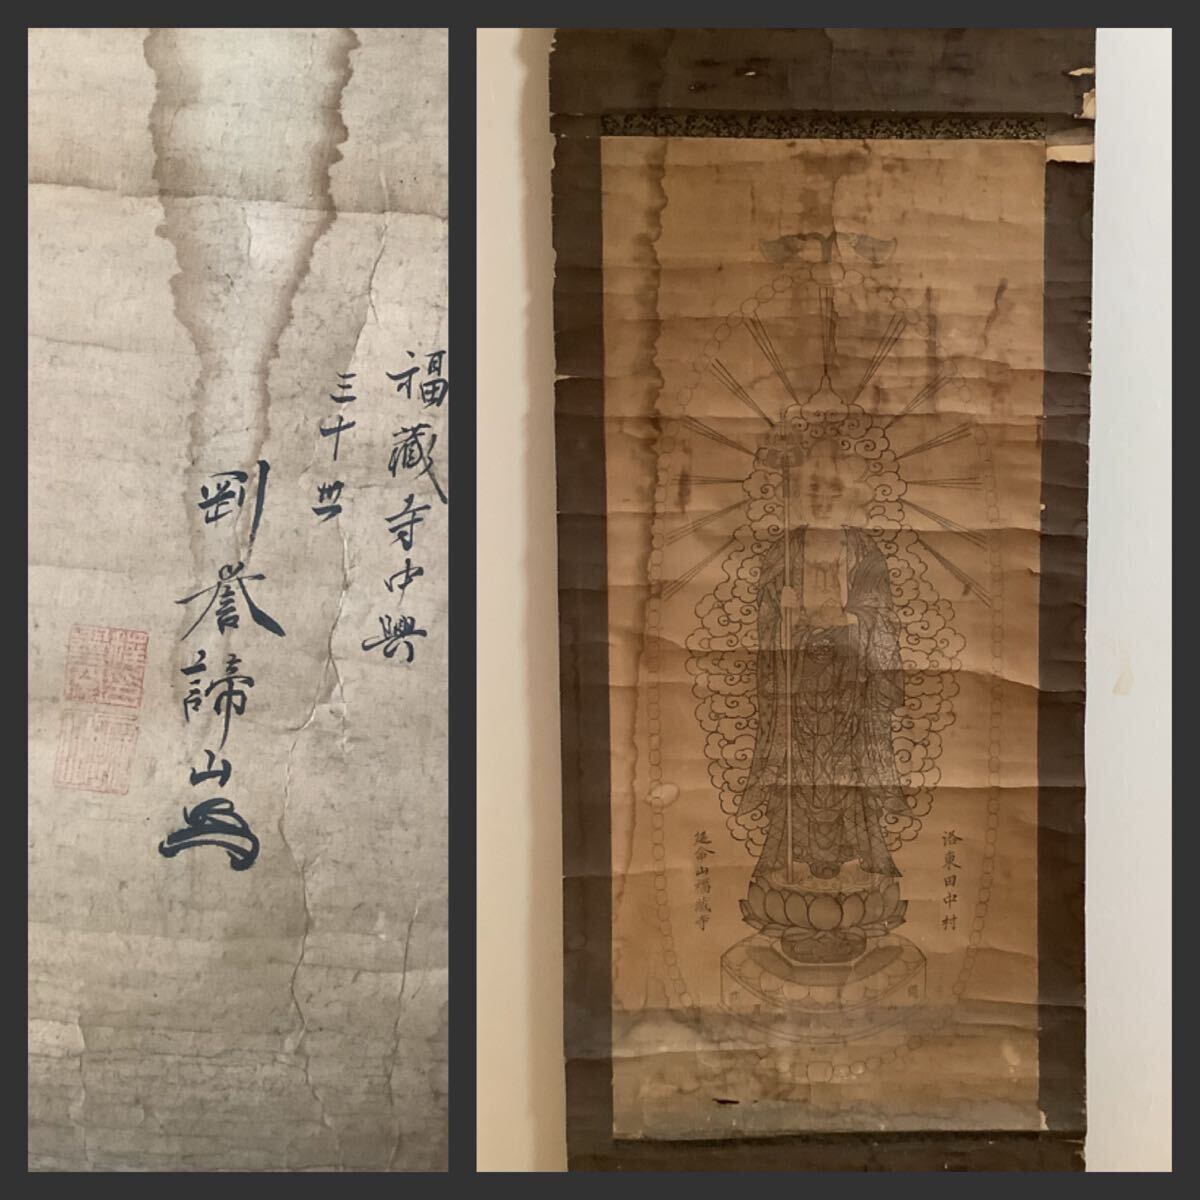 福藏寺中興
三十世
剛譽諦山
洛東田中村
延命山福藏寺